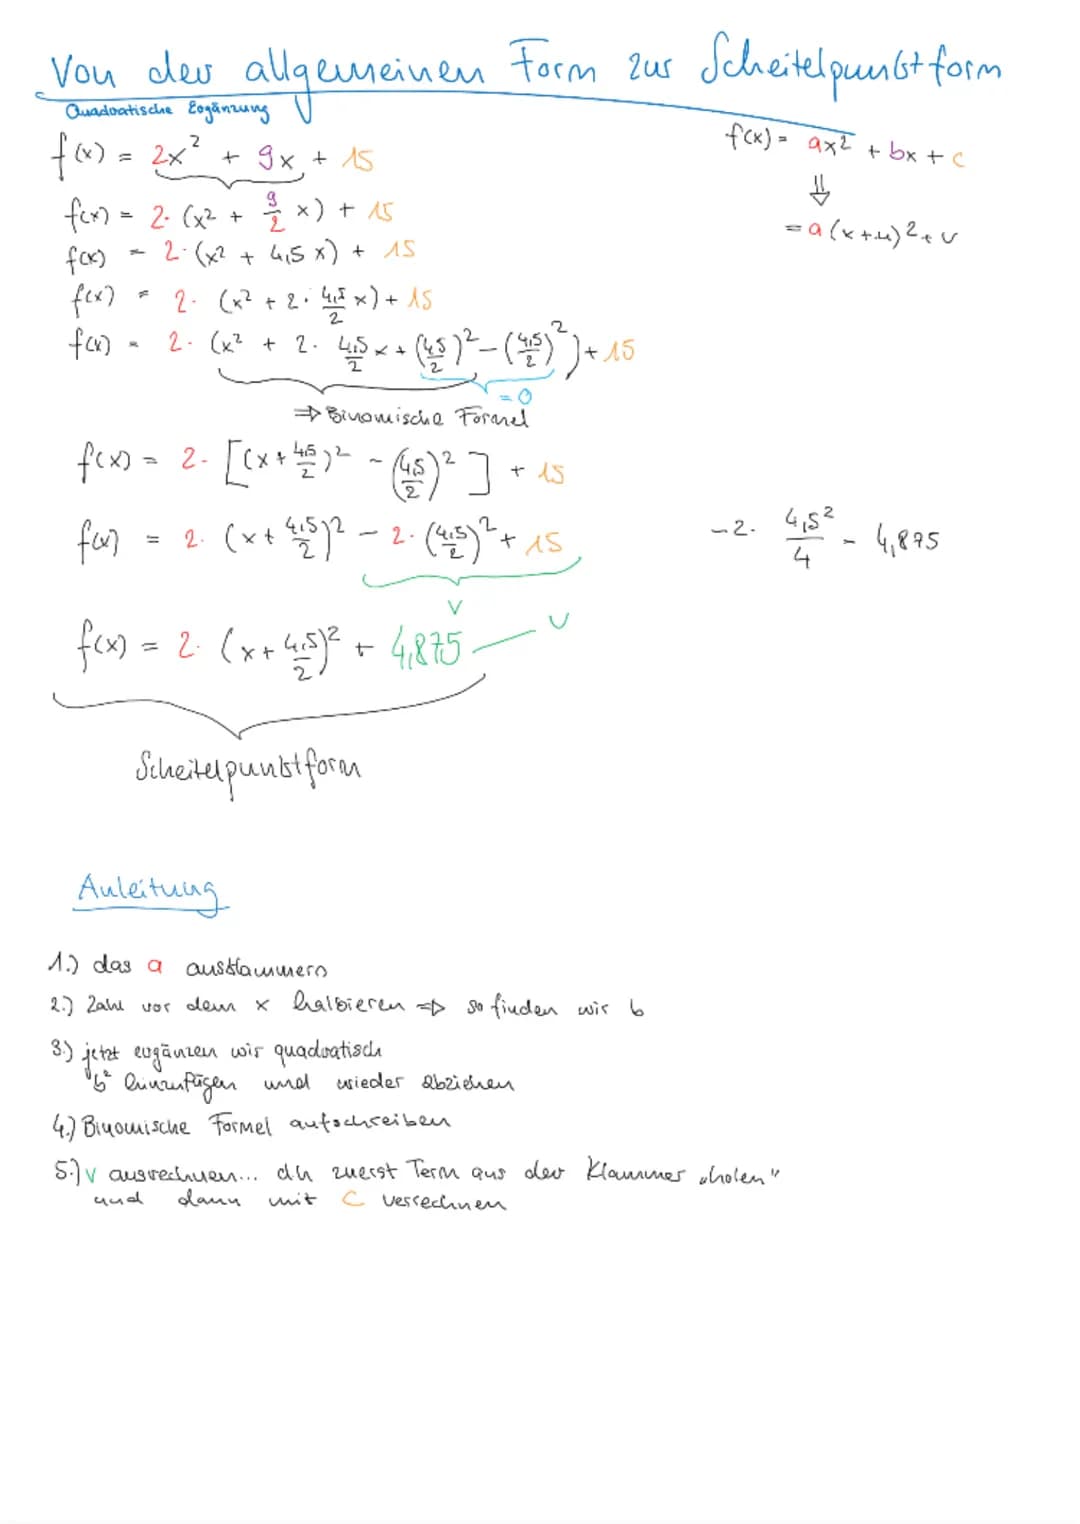 Von der allgemeinen Form zur Scheitelpunktform
Quadratische Ergänzung
f(x) = 2x² + 9x + 15
f(x) = ax² + bx + c
⇓
= a(x+u)² + v
f(x) = 2·(x² + 9/2 x) + 15
f(x) = 2·(x² + 4,5x) + 15
f(x) = 2·(x² + 2·4,5/2 x) + 15
f(x) = 2·(x² + 2·4,5/2 x + (4,5/2)² − (4,5/2)²) + 15
= 0
⇒ Binomische Formel
f(x) = 2·[(x + 4,5/2)² − (4,5/2)²] + 15
f(x) = 2·(x + 4,5/2)² − 2·(4,5/2)² + 15
−2· 4,5²/4 = 4,875
v
f(x) = 2·(x + 4,5/2)² + 4,875 — v
Scheitelpunktform
Anleitung
1.) das a ausklammern
2.) Zahl vor dem x halbieren ⇒ so finden wir b
3.) jetzt ergänzen wir quadratisch
b² hinzufügen und wieder abziehen
4.) Binomische Formel aufschreiben
5.) v ausrechnen... dh zuerst Term aus der Klammer „holen"
und dann mit C verrechnen